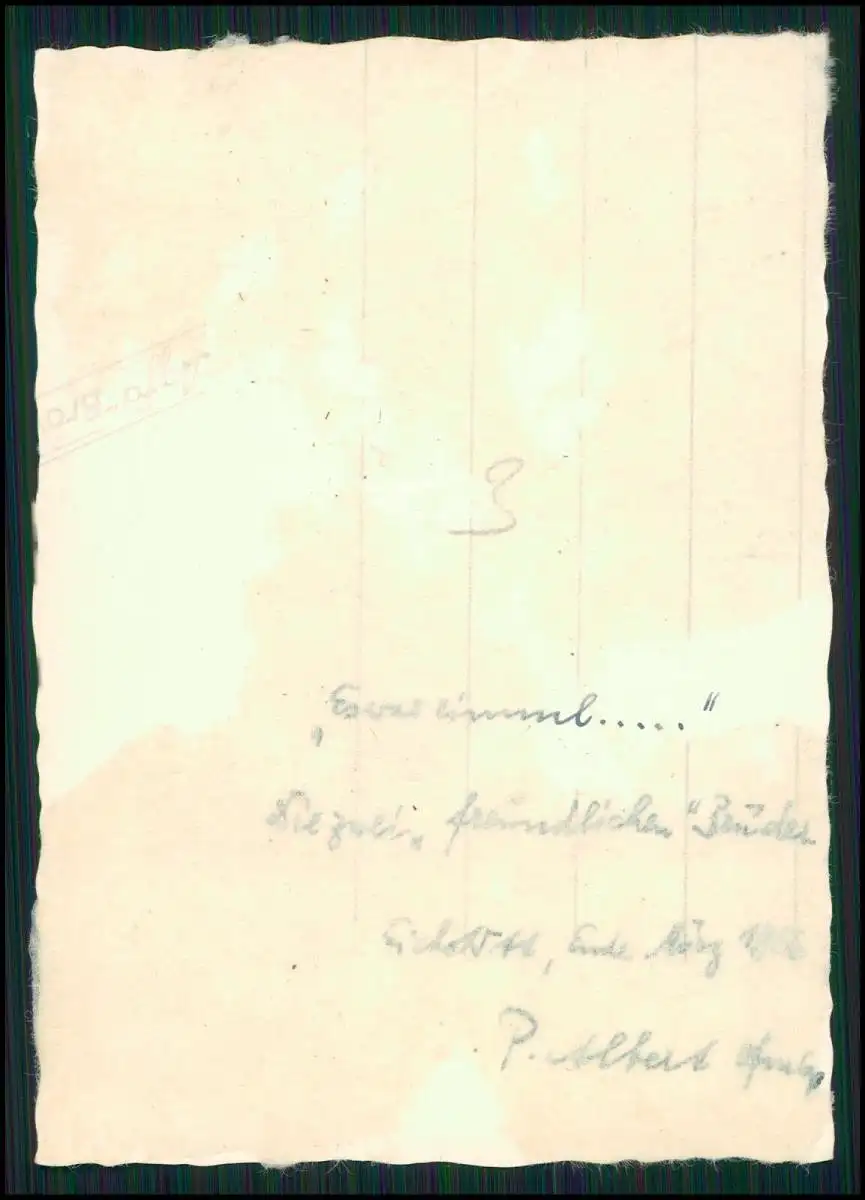 3
„Es war einmal....."
Die zwei „freundlichen" Brüder
, Ende März
P. Albert